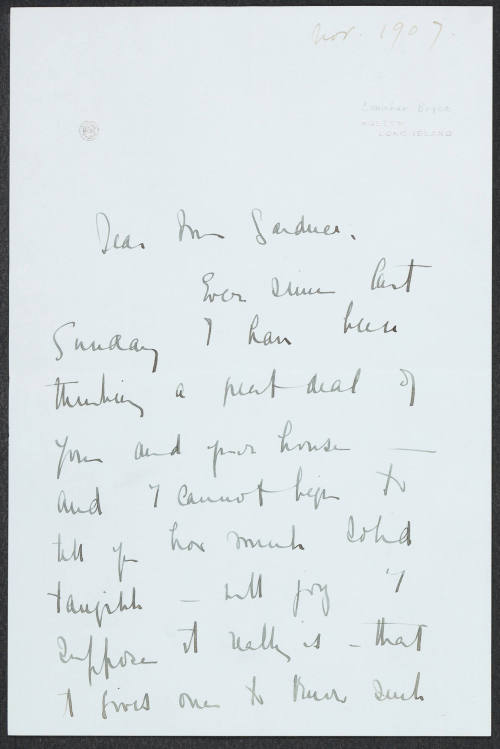 Nov. 1907.
ROSLYN
LONG ISLAND
Dear Mrs Gardner.
Ever since last
Sunday I have been
thinking a great deal of
you and your house —
and I cannot begin to
tell you how much solid
tangible — well joy I
suppose it really is – that
it gives one to know such